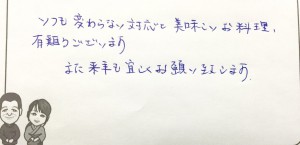 いつも変わらない対応と美味しいお料理、
有難うございます
また来年も宜しくお願い致します